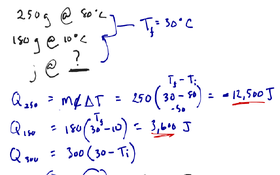 250g @ 80°C
180g @ 10°C
j @ ?
T_f = 30°C
T_f - T_i
Q_250 = m¢ΔT = 250(30-80) = -12,500 J
-50
T_f
Q_180 = 180(30-10) = 3,600 J
Q_300 = 300(30-T_i)